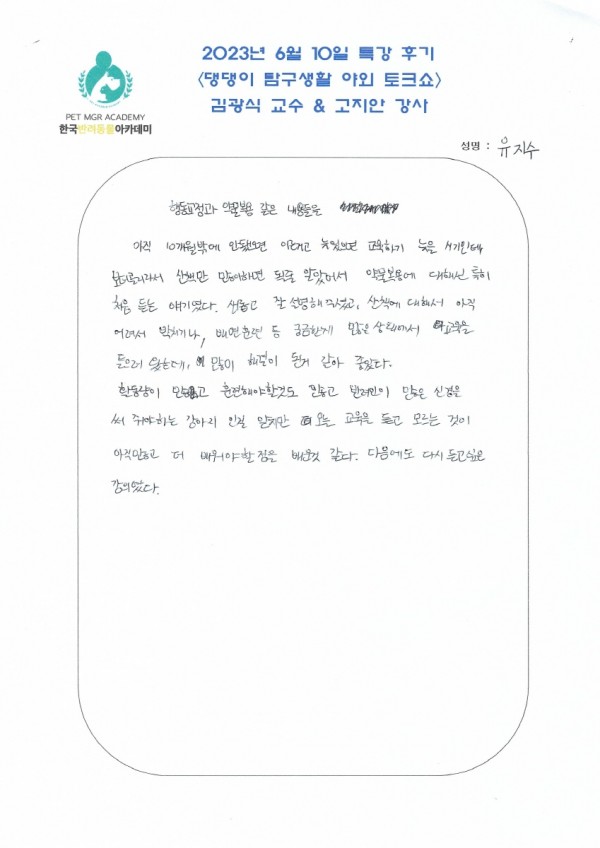 2023년 6월 10일 특강 후기
<댕댕이 탐구생활 야외 토크쇼>
김광식 교수 & 고지안 강사
PET MGR ACADEMY
한국반려동물아카데미
성명 : 유지수
행동교정과 약물복용 같은 내용들을
아직 10개월밖에 안됐으면 늦을 시기인데
산책만 많이하면 될줄 알았어서 약물복용에 대해선 특히
처음 듣는 얘기였다. 잘 설명해 주셨고, 산책에 대해서 아직
어려서 등 궁금한게 많은 상태에서 교육을
들으러 왔는데, 많이 해결이 된거 같아 좋았다.
활동량이 많고 훈련해야할것도 많고 반려인이 많은 신경을
써 줘야하는 강아지 인걸 알지만 오늘 교육을 듣고 모르는 것이
아직많고 더 배워야할 점을 배운것 같다. 다음에도 다시 듣고싶은
강의였다.